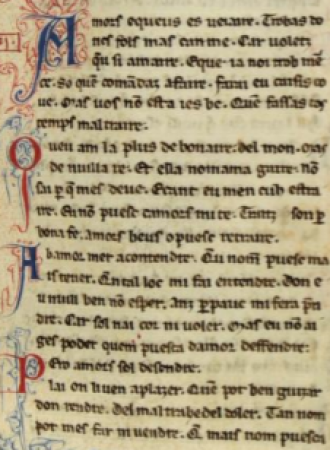 Amors equeus es veiaire. Trobas do
nc fols mas can me. Car voletz
qu si amaire. Eque ia noi trob me
ce. so que comādatz afaire. farai eu
ve. Mas vos nō esta ies be. Quē fassas tos
temps maltraire.
Qu eu am la plus de bonaire. del mon. mas
de nuilla re. Et ella noiama gaire. nō
sai p q mes deve. Et cant eu men cuh estra
ire. Eu nō puesc camors mi te. Traitz son p
bona fe. amors beus o puesc retraire.
Ab amor mer acontendre. Qu nom puesc ma
is tener. En tal loc mi fai entendre. don e
u nuill ben nō esper. Anz p pauc mi fera pē
dre. Car sol nai cor ni voler. Mas eu nō ai
ges poder quem puesca damor deffendre.
Pero amors sol desendre.
lai on li ven a plazer. Quē pot ben guizar
don rendre. Del maltrabe del doler. Tan nom
pot mes far ni vendre. Q mais nom puesca